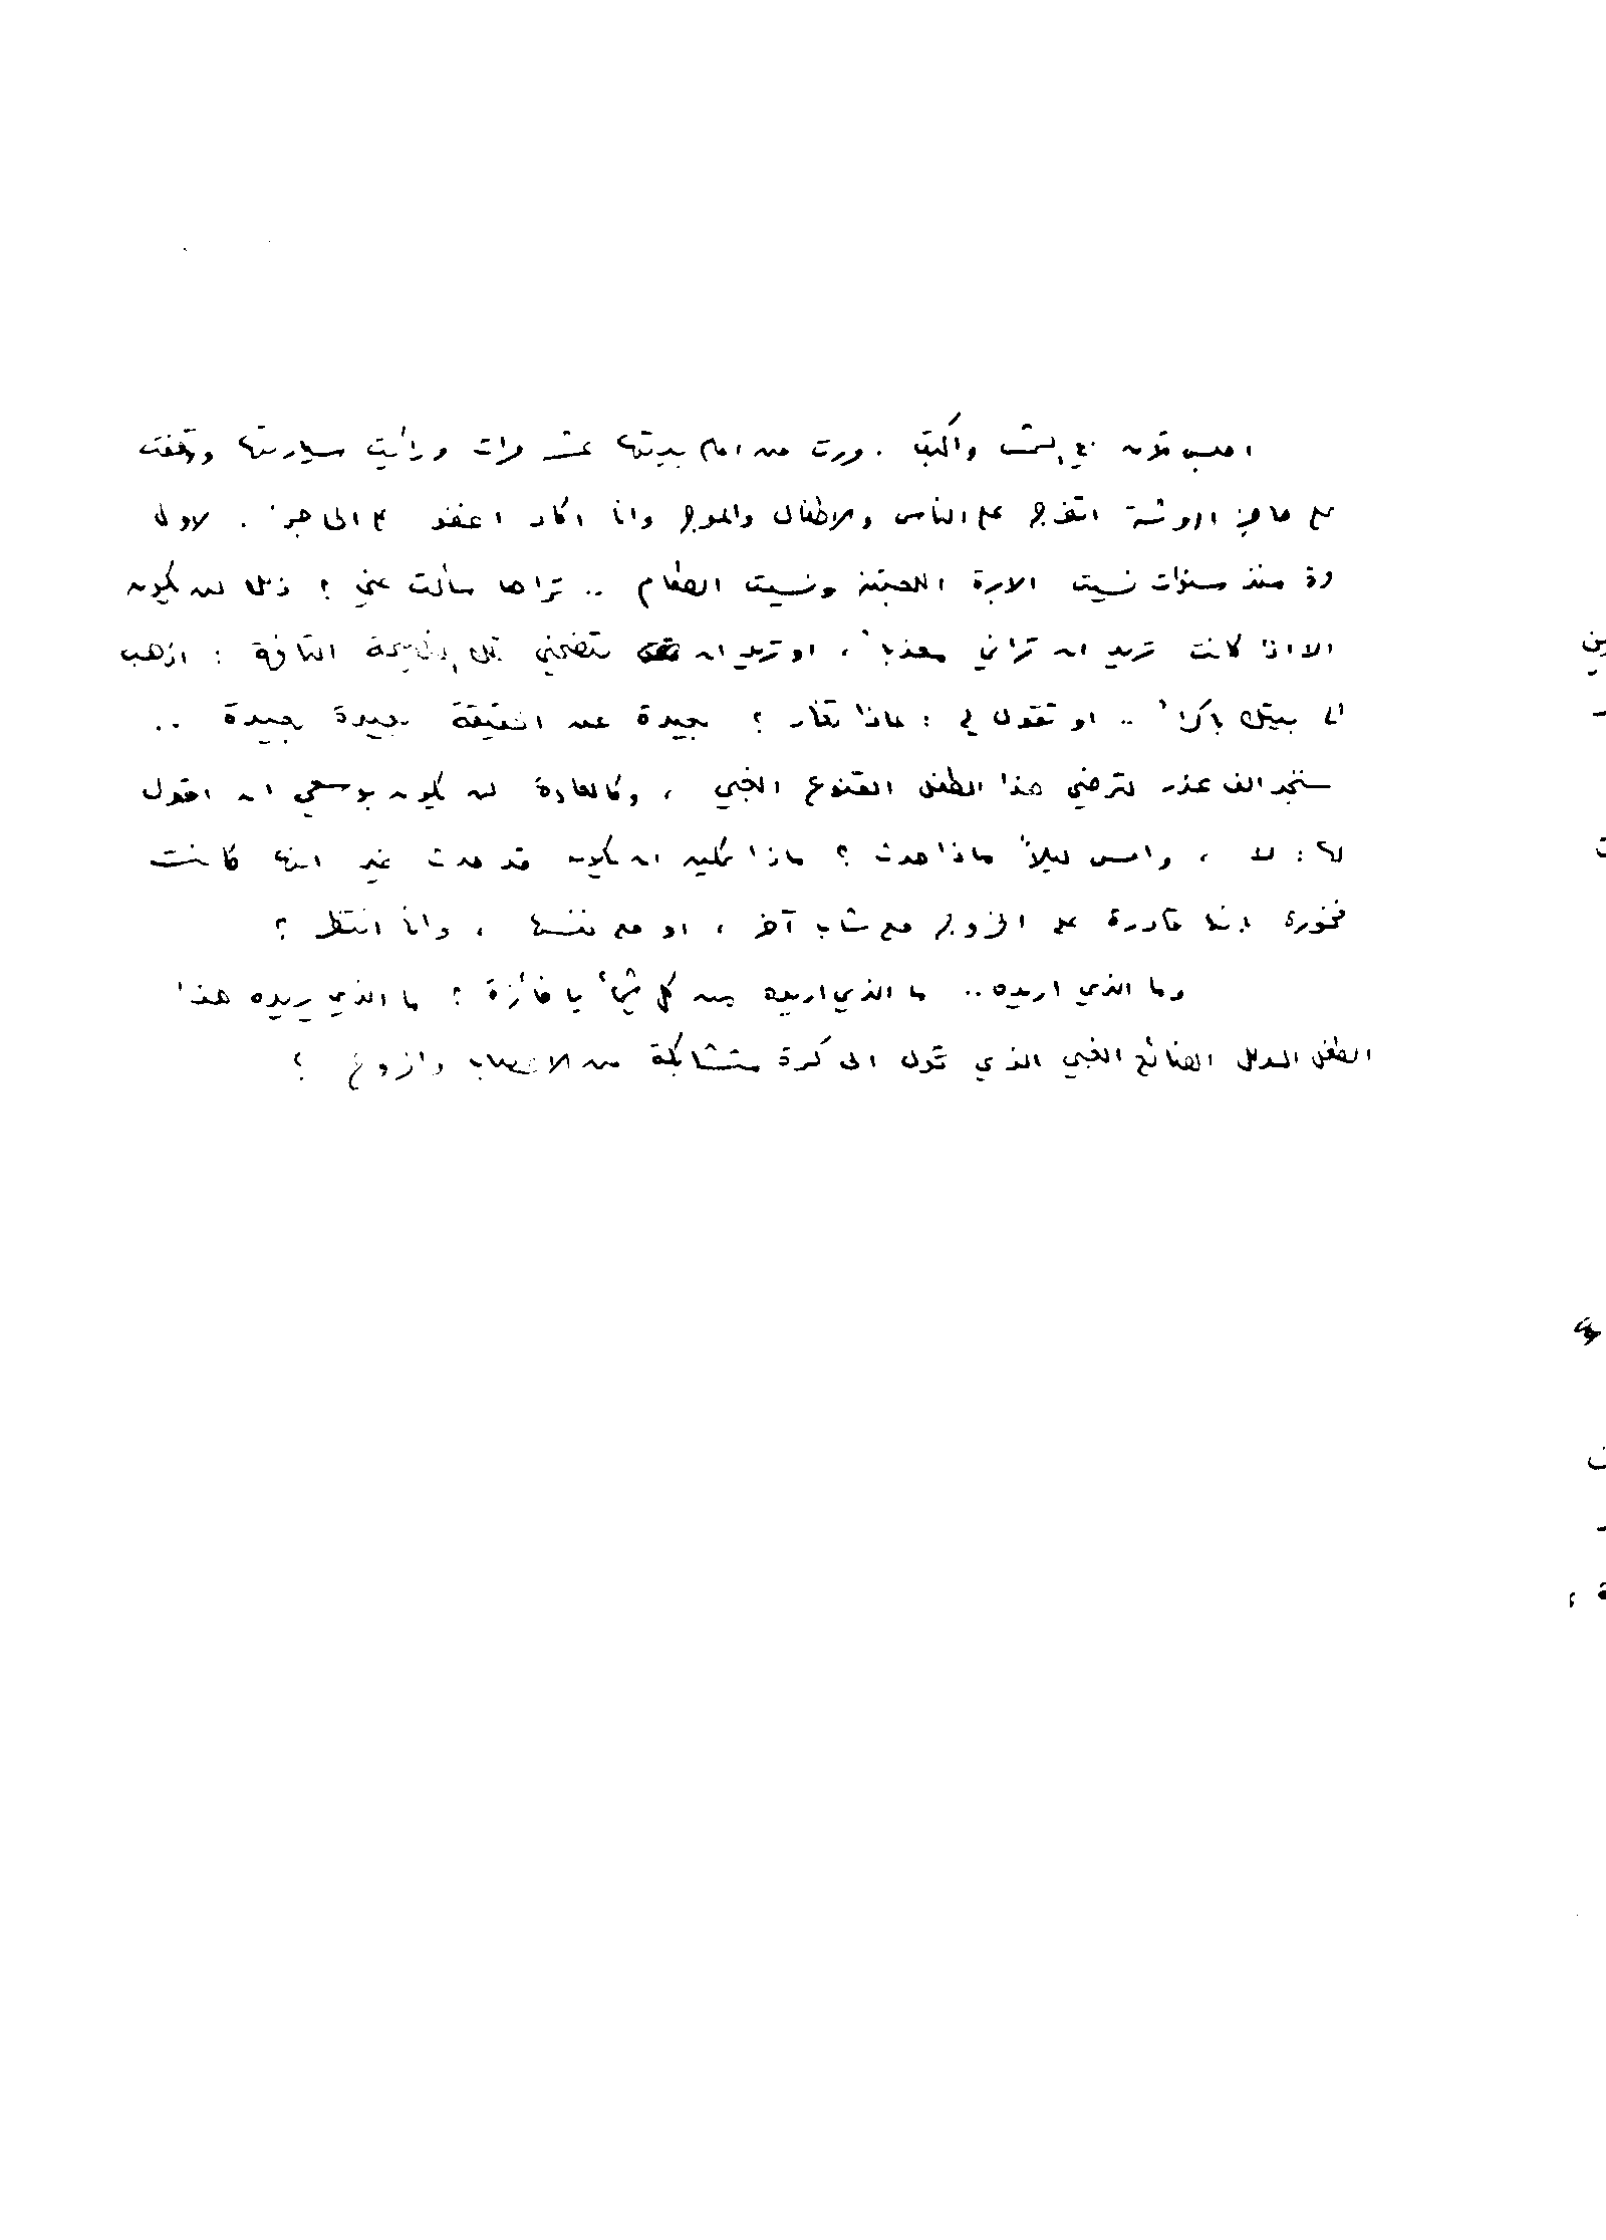 اجلس الآن في الشمس واكتب . مررت من امام بيتها عشر مرات ورأيت سيارتها ووقفت
على حاجز الروشة اتفرج على الناس والاطفال والموج وانا اكاد اغفو على الحاجز . لاول
مرة منذ سنوات نسيت الابرة اللعينة ونسيت الطعام .. تراها سألت عني ؟ ذلك لن يكون
الا اذا كانت تريد ان تراني معذباً ، او تريد ان تنصحني تلك النصيحة التافهة : اذهب
الى بيتك باكراً .. او تقول لي : ماذا تغار ؟ بعيدة عن الحقيقة بعيدة بعيدة ..
ستجد الف عذر لترضي هذا الطفل القنوع الغبي ، وكالعادة لن يكون بوسعي ان اقول
لها : لا ، وامس ليلاً ماذا حدث ؟ ماذا يمكن ان يكون قد حدث غير انها كانت
فخورة بانها قادرة على الخروج مع شاب آخر ، او مع نفسها ، وانا انتظر ؟
وما الذي اريده .. ما الذي اريده من كل شيء يا فائزة ؟ ما الذي يريده هذا
الطفل المدلل الضائع الغبي الذي تحول الى كرة متشابكة من الاعصاب والزوغ ؟